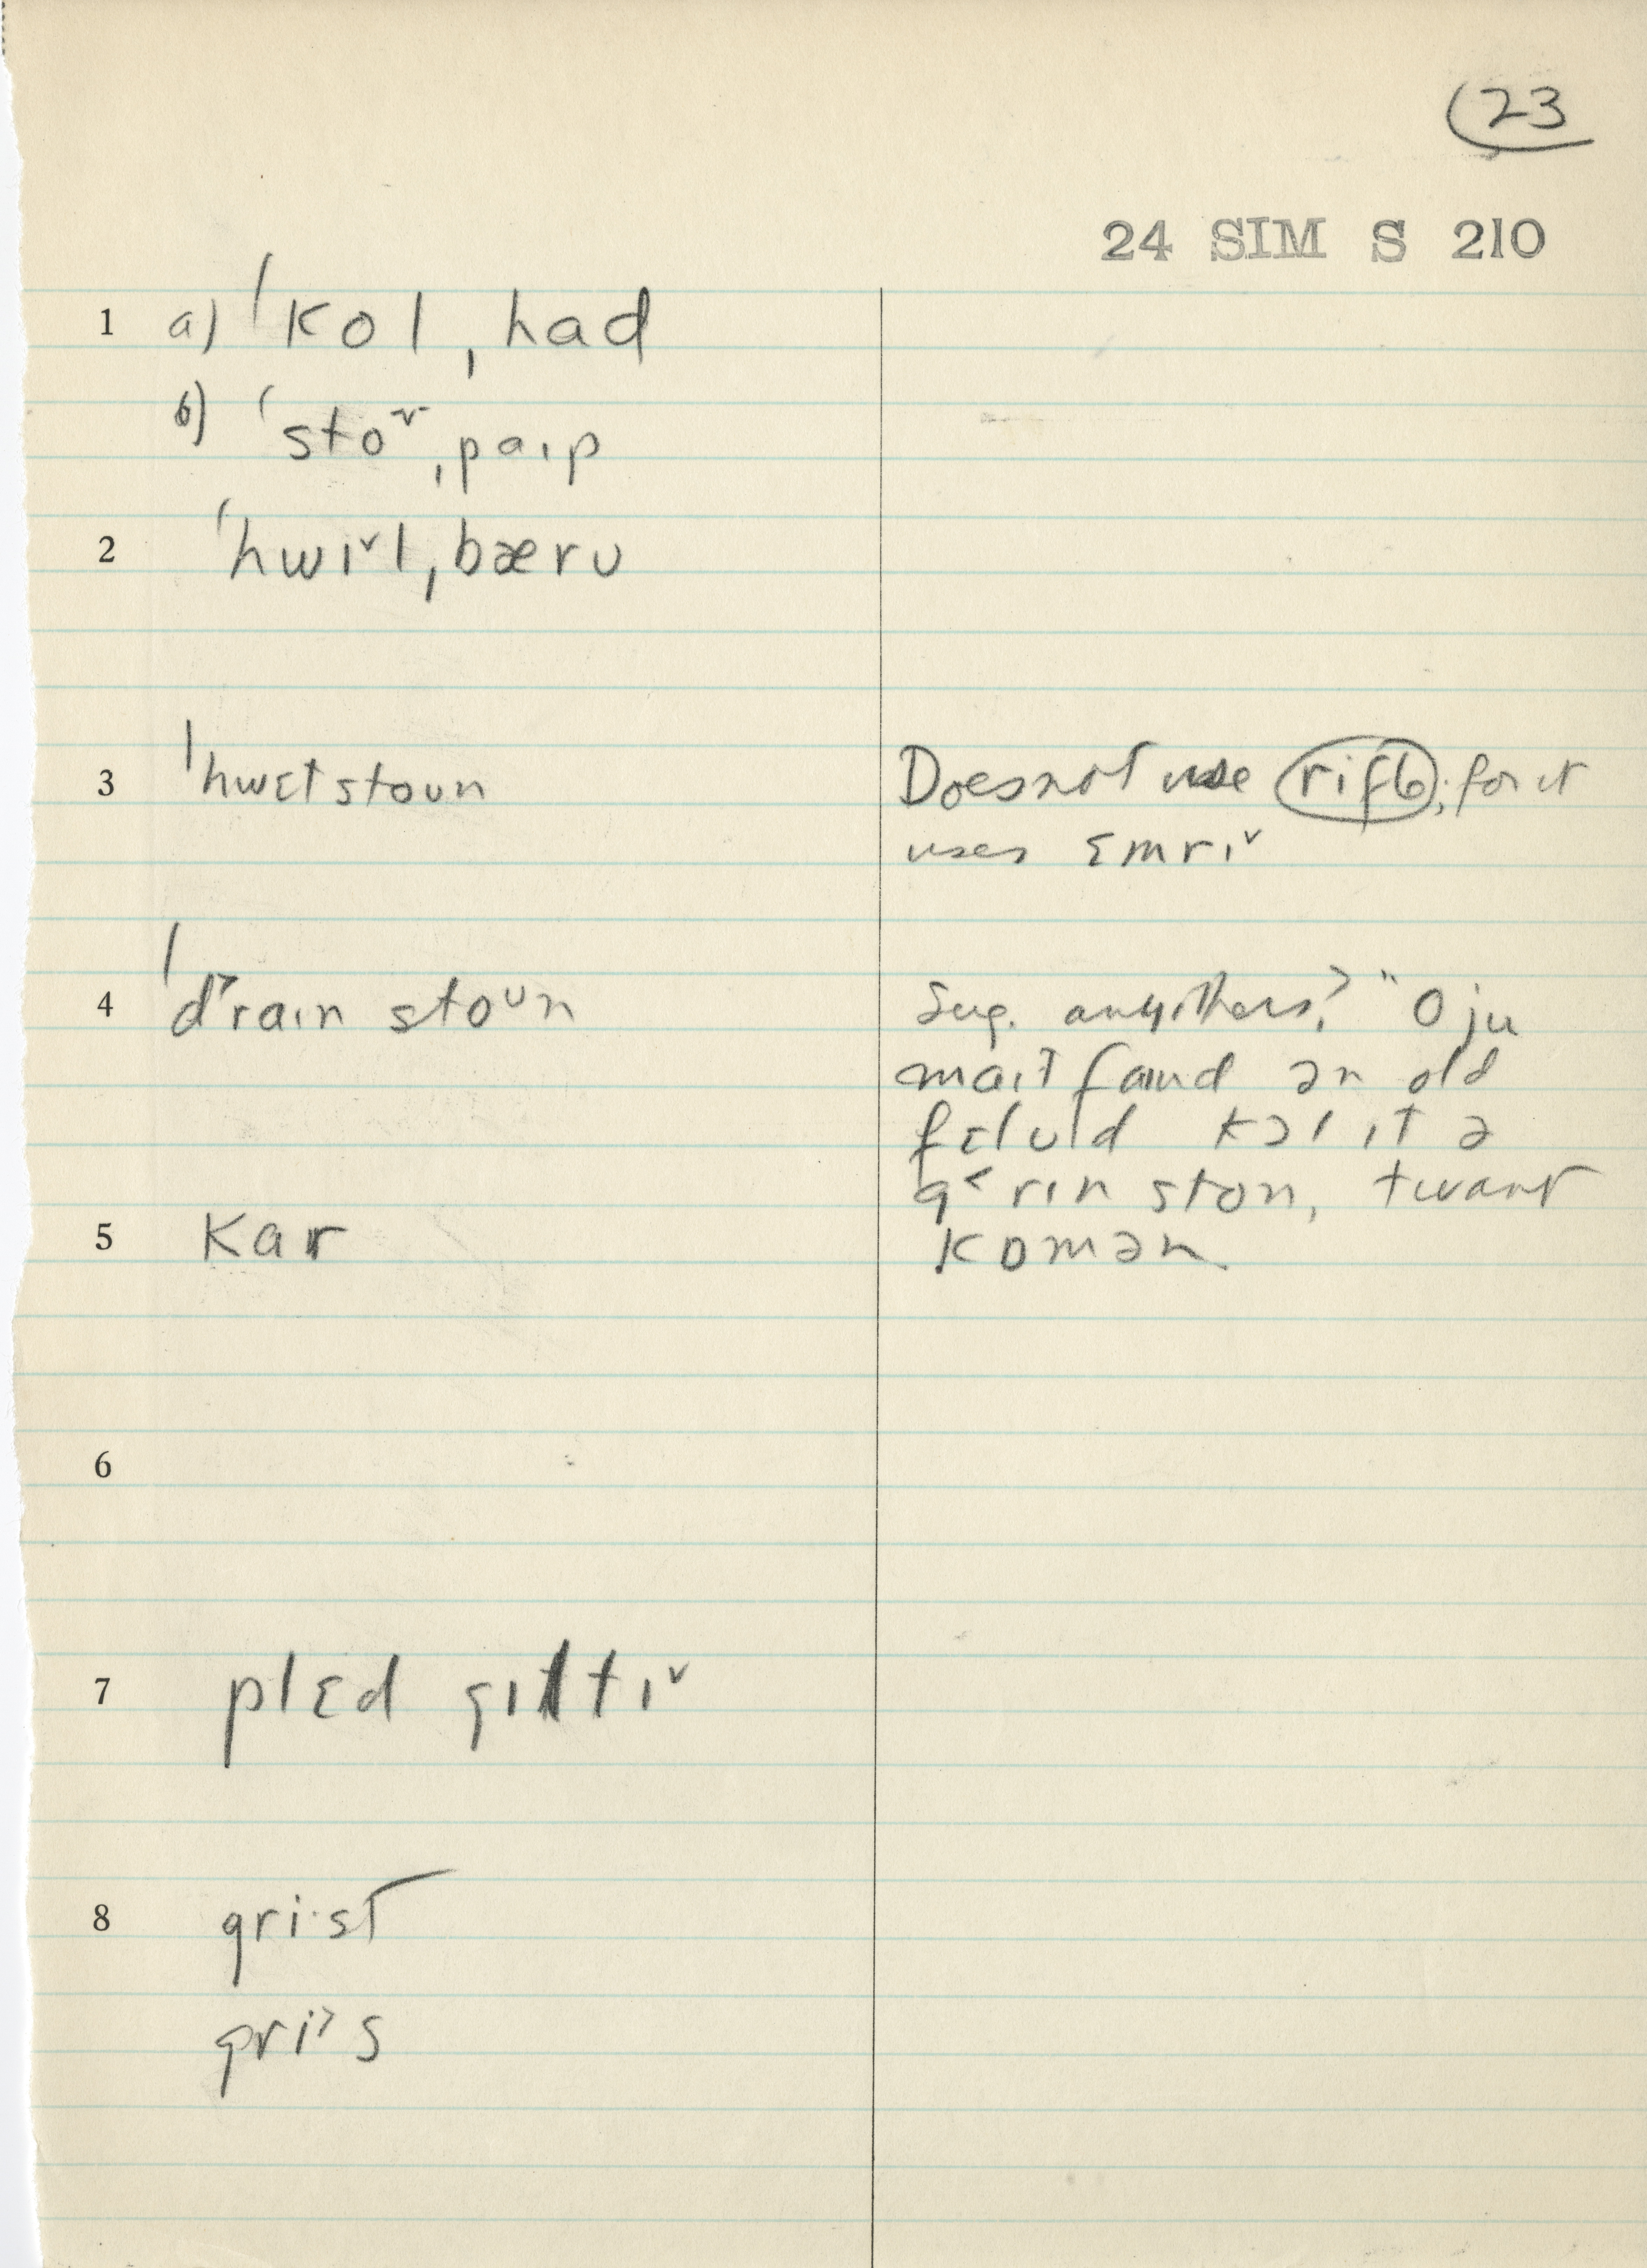 (23
24 SIM S 210
1 a) ˈkol ˌhad
b) ˈsto˅ ˌpaɪp
2 ˈhwɪ˅l ˌbærʊ
3 ˈhwɛtstoʊn
Does not use rifl; for it
uses ɛmrɪ˅
4 ˈd˃raɪn stoʊn
Sug. anyothers? "O ju
maɪt faɪnd ən old
fɛlʊld kɔl ɪt ə
g˂rɪn ston, twant
5 kar
kɒmən
6
7 plɛd gɪltɪ˅
8 gri·st
gri˃s